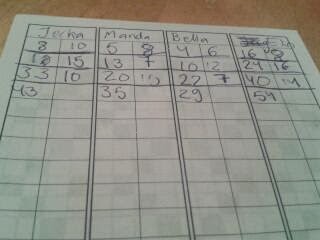 Jecka Manda Bella
8 10 5 8 4 6 16 8
18 15 13 7 10 12 24 16
33 10 20 15 22 7 40 14
43 35 29 54